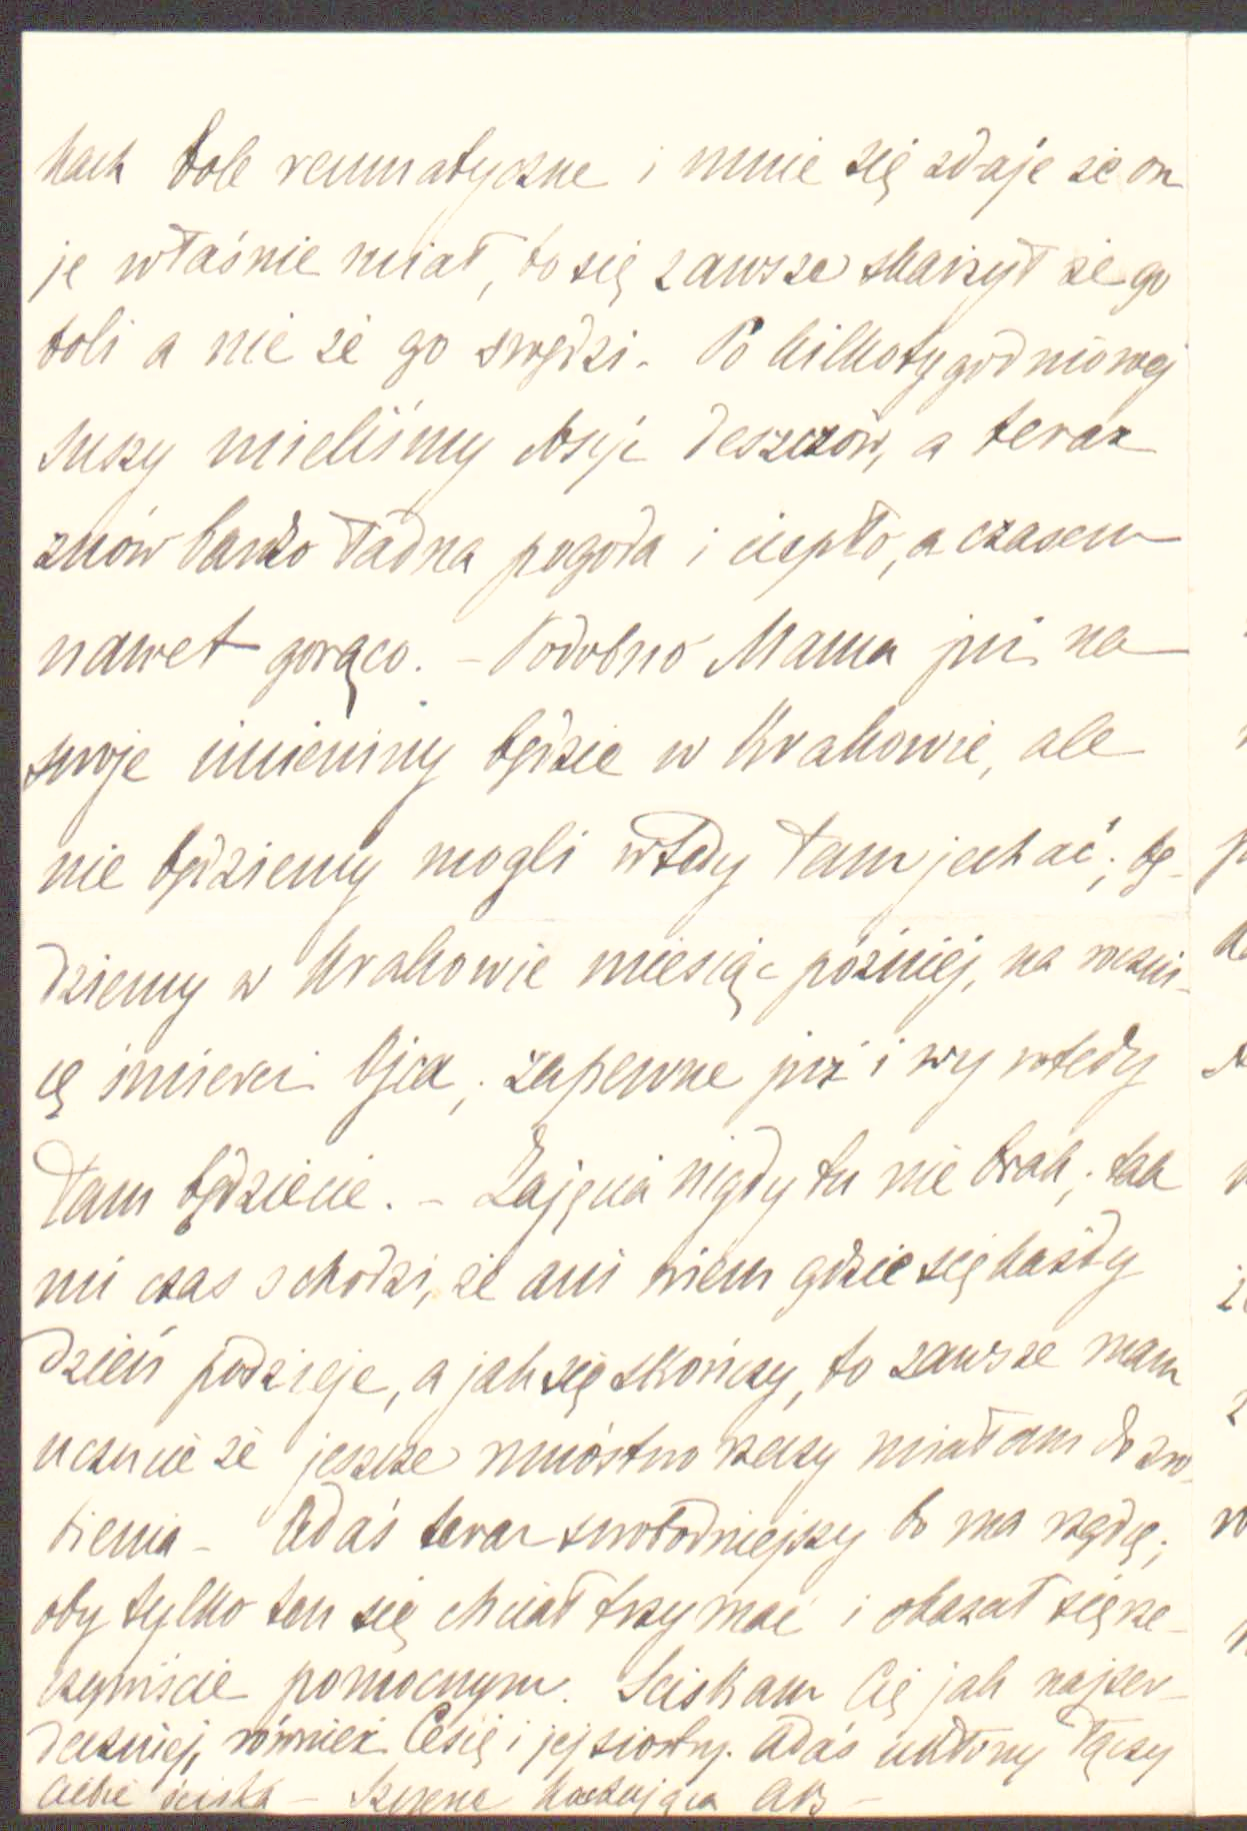 kach bole reumatyczne i mnie się zdaje że on
je właśnie miał, bo się zawsze skarżył że go
boli a nie że go swędzi. Po kilkotygodniowej
suszy mieliśmy dosyć deszczów, a teraz
znów bardzo ładna pogoda i ciepło, a czasem
nawet gorąco. – Podobno Mama już na
swoje imieniny będzie w Krakowie, ale
nie będziemy mogli wtedy tam jechać; bę-
dziemy w Krakowie miesiąc później, na roczni-
cę śmierci Ojca; zapewne już i wy wtedy
tam będziecie. – Zajęcia nigdy tu nie brak; tak
mi czas schodzi, że ani wiem gdzie się każdy
dzień podzieje, a jak się skończy, to zawsze mam
uczucie że jeszcze mnóstwo rzeczy miałam do zro-
bienia – Adaś teraz swobodniejszy bo ma rządcę;
oby tylko ten się chciał trzymać i okazał się rze-
czywiście pomocnym. Ściskam Cię jak najser-
deczniej, również Cesię i jej siostry. Adaś ukłony łączy
Ciebie ściska – Szczerze kochająca